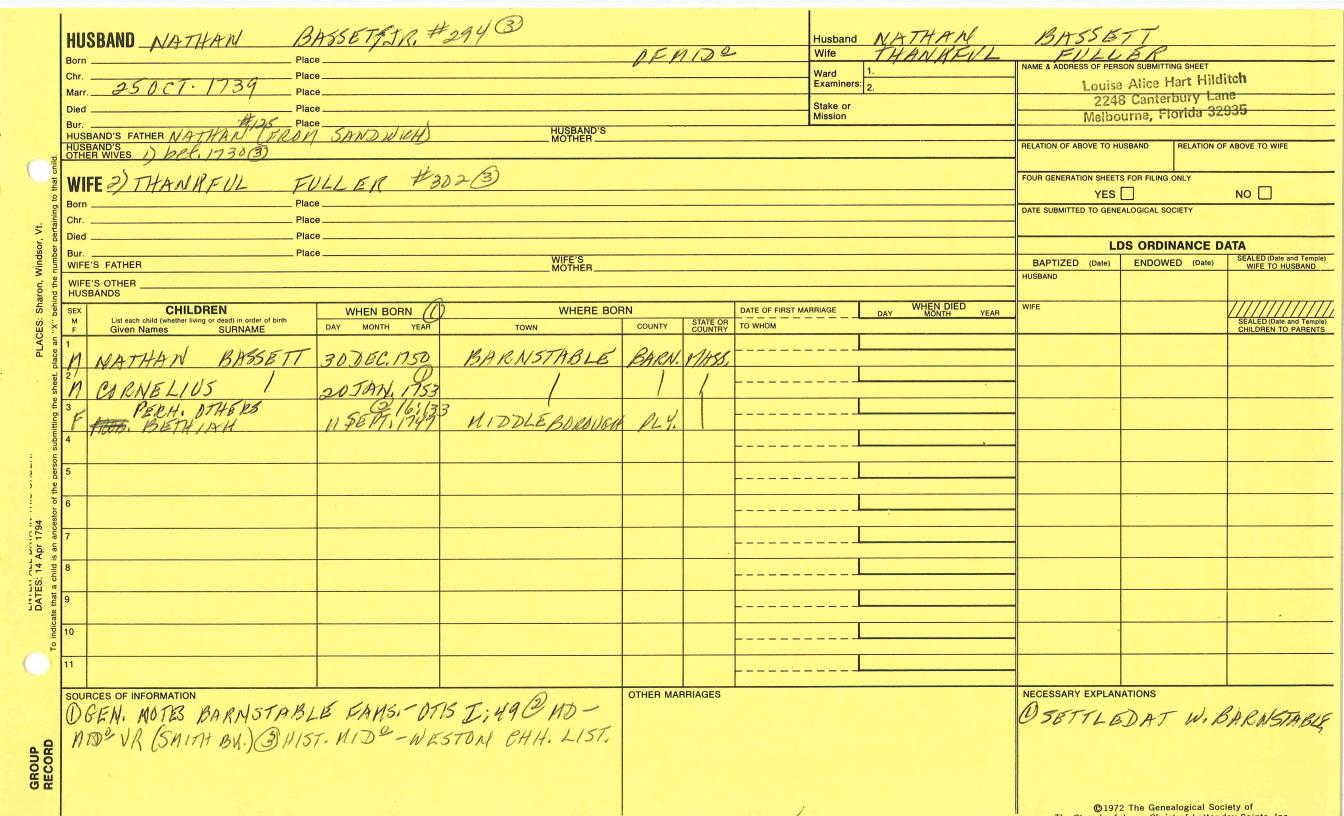 HUSBAND NATHAN BASSETT, JR. #294 ③
Born Place OF MIDo
Chr. Place
Marr. 25 OCT. 1739 Place
Died Place
Bur. Place
#125
HUSBAND'S FATHER NATHAN (FROM SANDWICH) HUSBAND'S MOTHER
HUSBAND'S OTHER WIVES 1) bef. 1730 ③
Husband NATHAN BASSETT
Wife THANKFUL FULLER
Ward Examiners: 1.
2.
Stake or Mission
NAME & ADDRESS OF PERSON SUBMITTING SHEET
Louise Alice Hart Hilditch
2248 Canterbury Lane
Melbourne, Florida 32935
RELATION OF ABOVE TO HUSBAND RELATION OF ABOVE TO WIFE
FOUR GENERATION SHEETS FOR FILING ONLY
YES NO
DATE SUBMITTED TO GENEALOGICAL SOCIETY
WIFE 2) THANKFUL FULLER #302 ③
Born Place
Chr. Place
Died Place
Bur. Place
WIFE'S FATHER WIFE'S MOTHER
WIFE'S OTHER HUSBANDS
LDS ORDINANCE DATA
BAPTIZED (Date) ENDOWED (Date) SEALED (Date and Temple) WIFE TO HUSBAND
HUSBAND
WIFE
SEALED (Date and Temple) CHILDREN TO PARENTS
SEX M F CHILDREN WHEN BORN ① WHERE BORN DATE OF FIRST MARRIAGE WHEN DIED
List each child (whether living or dead) in order of birth
Given Names SURNAME DAY MONTH YEAR TOWN COUNTY STATE OR COUNTRY TO WHOM DAY MONTH YEAR
1 M NATHAN BASSETT 30 DEC. 1750 BARNSTABLE BARN. MASS.
2 M CORNELIUS / 20 JAN. 1753 ① / / /
PERH. OTHERS ② 16:133
3 F BETHIAH 11 SEPT. 1749 MIDDLEBOROUGH PLY.
4
5
6
7
8
9
10
11
SOURCES OF INFORMATION
① GEN. NOTES BARNSTABLE FAMS.-OTIS I;49 ② MD-
MIDo VR (SMITH BK.) ③ HIST. MIDo-WESTON CHH. LIST.
OTHER MARRIAGES
NECESSARY EXPLANATIONS
① SETTLED AT W. BARNSTABLE
©1972 The Genealogical Society of
PLACES: Sharon, Windsor, Vt.
DATES: 14 Apr 1794
To indicate that a child is an ancestor of the person submitting the sheet, place an "X" behind the number pertaining to that child.
GROUP
RECORD